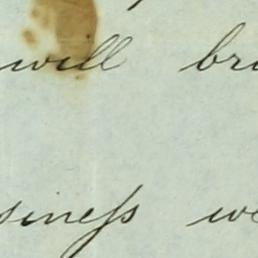 will bri
siness we